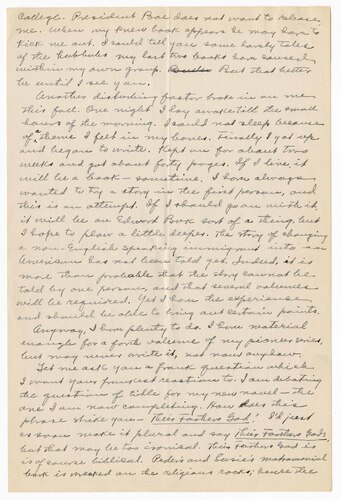 College. President Boe does not want to release
me. When my new book appears he may have to
kick me out. I could tell you some lovely tales
of the hubbubs my last two books have caused
within my own group. But that better
be until I see you.
Another disturbing factor broke in on me
this fall. One night I lay awake till the small
hours of the morning. I could not sleep because
of a theme I felt in my bones. Finally I got up
and began to write. Kept on for about two
weeks and got about fifty pages. If I live, it
will be a book – sometime. I have always
wanted to try a story in the first person, and
this is an attempt. If I should go on with it,
it will be an Edward Bok sort of a thing, but
I hope to plow a little deeper. The story of changing
a non English speaking immigrant into an
American has not been told yet. Indeed, it is
more than probable that the story cannot be
told by one person, and that several volumes
will be required. Yet I have the experience,
and should be able to bring out certain points.
Anyway, I have plenty to do. I have material
enough for a forth volume of my pioneer series,
but may never write it, not now anyhow.
Let me ask you a frank question which
I want your frankest reaction to. I am debating
the question of title for my new novel – the
one I am now completing. How does this
phrase strike you – Their Fathers God? I'd just
as soon make it plural and say Their Fathers Gods
but that may be too ironical. Their Fathers God is
is of course biblical. Peder's and Susie's matrimonial
bark is wrecked on the religious rocks; hence the